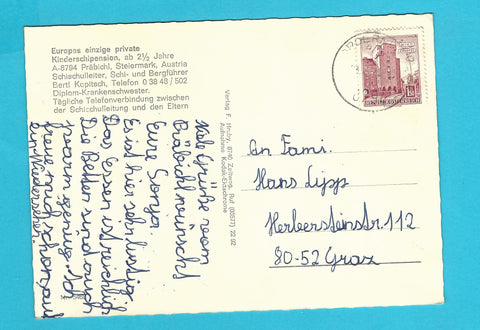 Europas einzige private
Kinderschipension, ab 2½ Jahre
A-8794 Präbichl, Steiermark, Austria
Schischulleiter, Schi- und Bergführer
Bertl Kopitsch, Telefon 0 38 48 / 502
Diplom-Krankenschwester.
Tägliche Telefonverbindung zwischen
der Schischulleitung und den Eltern
Viele Grüße vom
Präbichl wünscht
Eure Sonja.
Es ist hier sehr lustig.
Das Essen ist reichlich.
Die Betten sind auch
warm genug. Ich
freue mich schon auf
ein Wiedersehen.
Verlag F. Hruby, 8740 Zeltweg, Ruf (03577) 22 92
Aufnahme Kodak-Ektachrome
REPUBLIK ÖSTERREICH
An Fami.
Hans Lipp
Herbersteinstr. 112
80-52 Graz